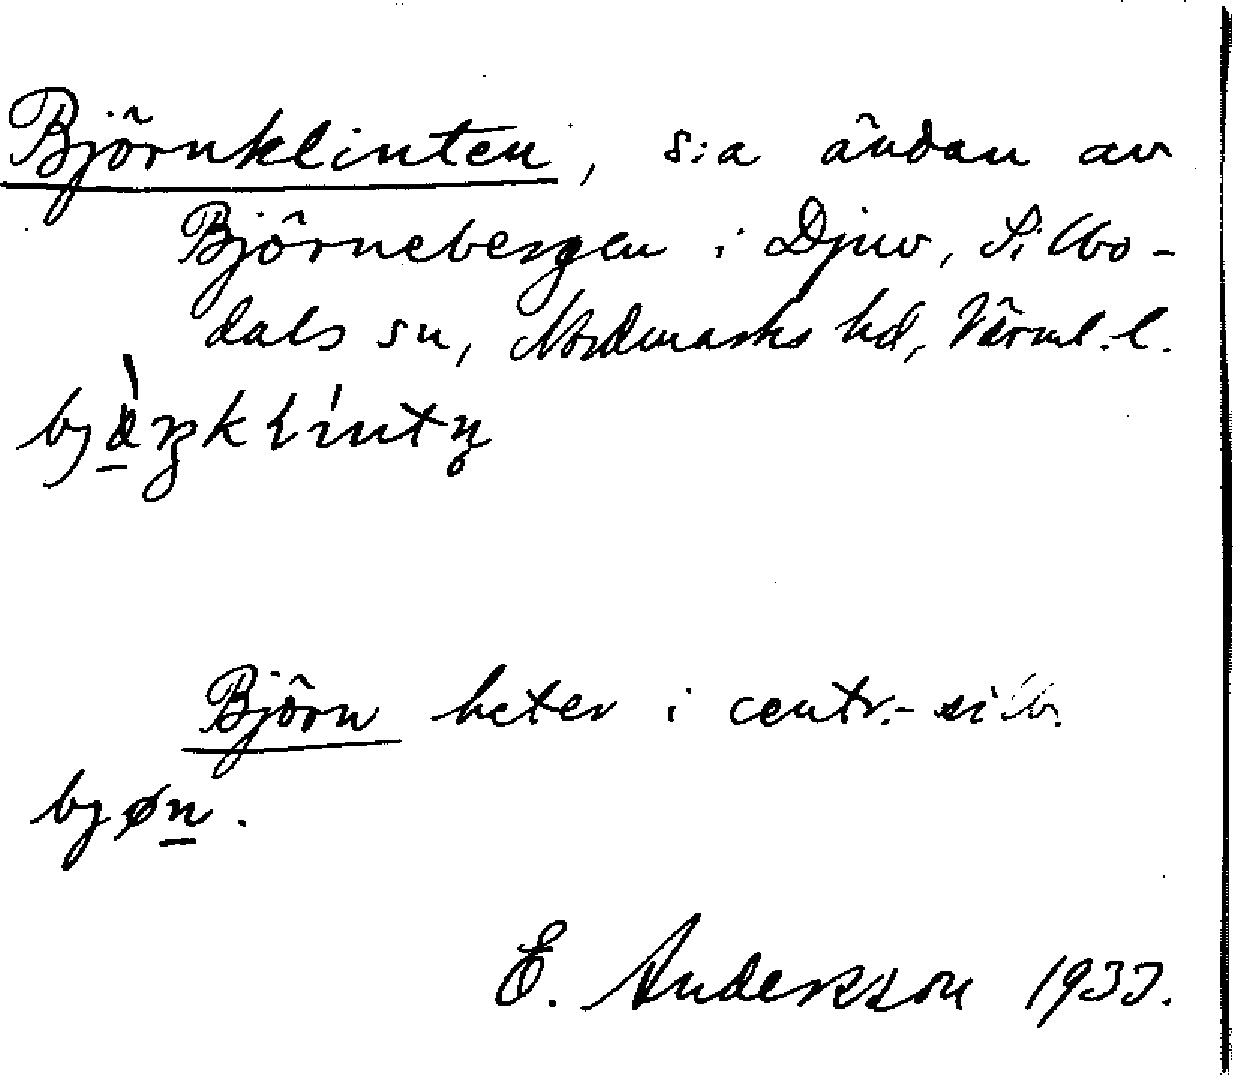 Björnklinten, s:a ändan av
Björnebergen i Djuv, Silbo-
dals sn, Nordmarks hd, Värml. l.
Björn heter i centr.-silb.
bjøn.
E. Andersson 1933.